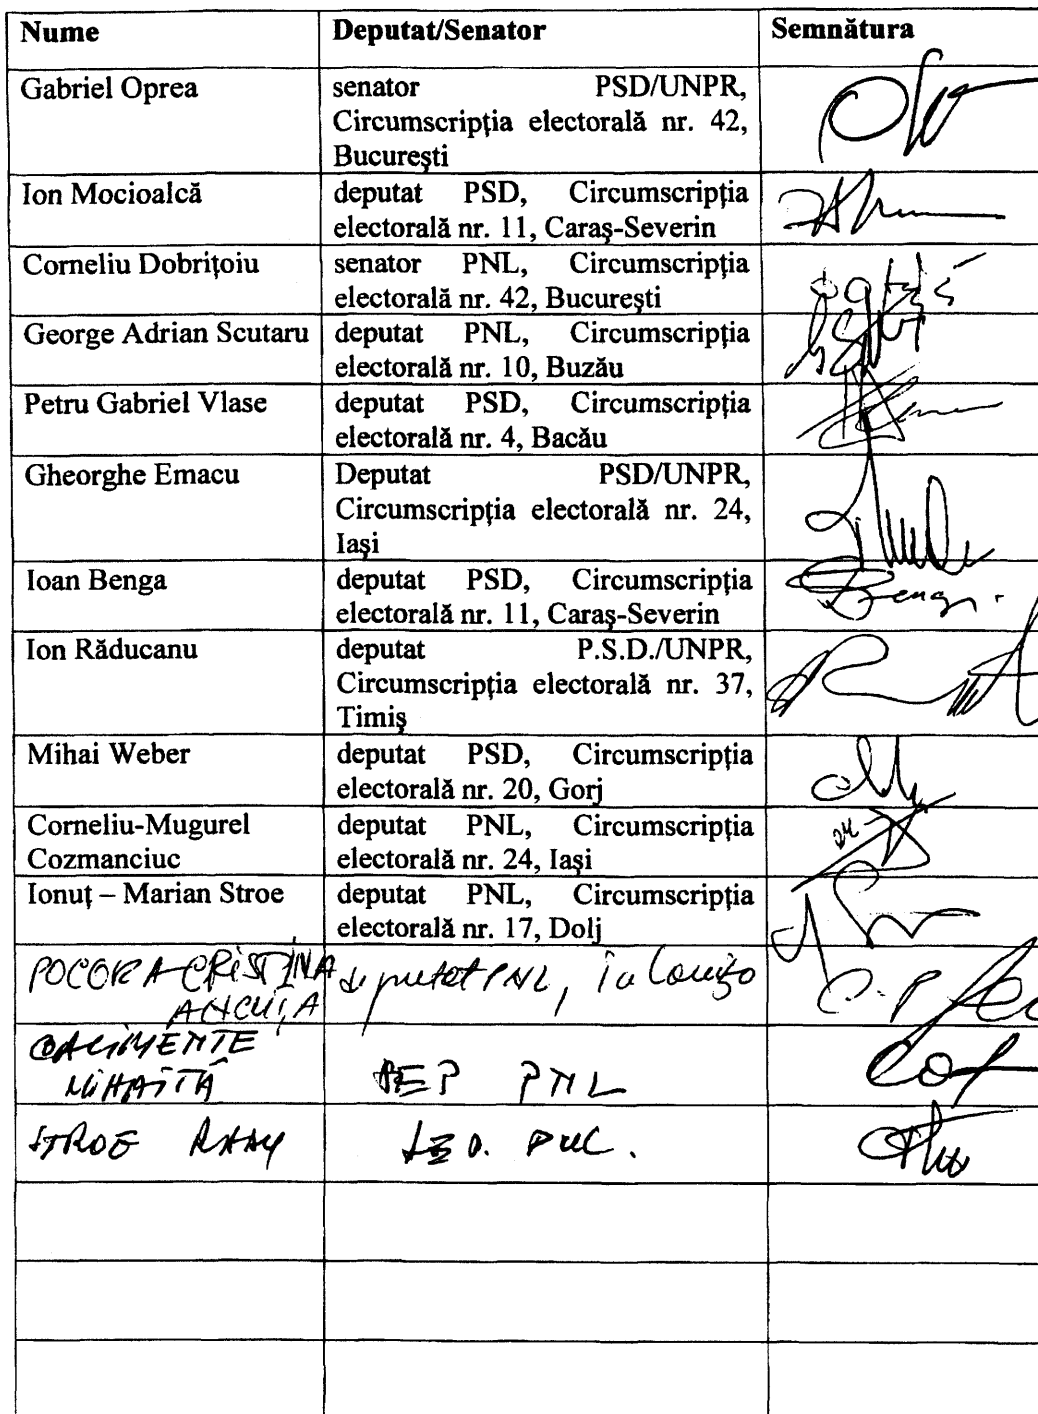 Nume Deputat/Senator Semnătura
Gabriel Oprea senator PSD/UNPR,
Circumscripția electorală nr. 42,
București
Ion Mocioalcă deputat PSD, Circumscripția
electorală nr. 11, Caraș-Severin
Corneliu Dobrițoiu senator PNL, Circumscripția
electorală nr. 42, București
George Adrian Scutaru deputat PNL, Circumscripția
electorală nr. 10, Buzău
Petru Gabriel Vlase deputat PSD, Circumscripția
electorală nr. 4, Bacău
Gheorghe Emacu Deputat PSD/UNPR,
Circumscripția electorală nr. 24,
Iași
Ioan Benga deputat PSD, Circumscripția
electorală nr. 11, Caraș-Severin
Ion Răducanu deputat P.S.D./UNPR,
Circumscripția electorală nr. 37,
Timiș
Mihai Weber deputat PSD, Circumscripția
electorală nr. 20, Gorj
Corneliu-Mugurel deputat PNL, Circumscripția
Cozmanciuc electorală nr. 24, Iași
Ionuț – Marian Stroe deputat PNL, Circumscripția
electorală nr. 17, Dolj
POCORA CRISTINA deputat PNL,
ANCUȚA
CALIMENTE
MIHĂIȚĂ DEP PNL
STROE